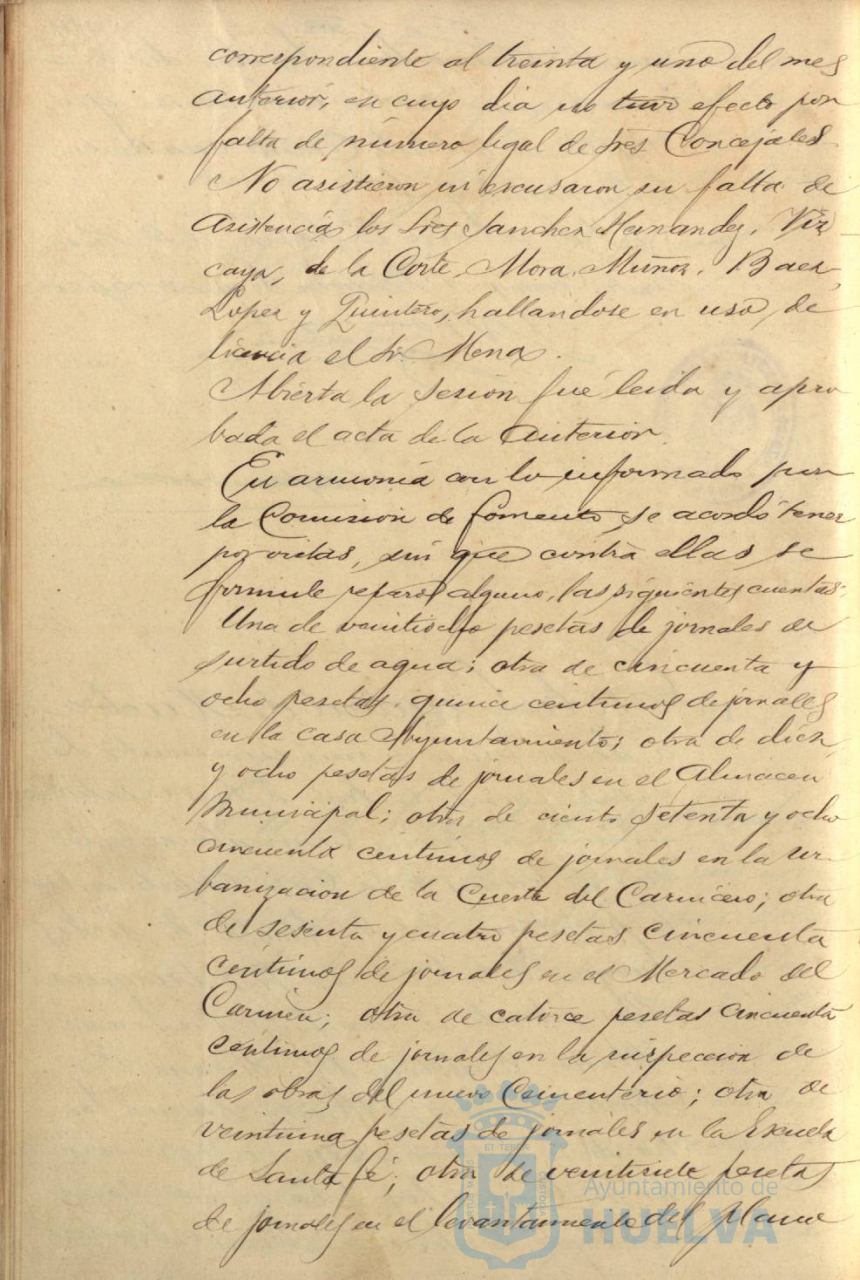 correspondiente al treinta y uno del mes
anterior, en cuyo dia no tuvo efecto por
falta de número legal de Sres. Concejales.
No asistieron ni escusaron su falta de
asistencia los Sres Sanchez Hernandez, Viz
caya, de la Corte, Mora, Muñoz, Baez,
Lopez y Quintero, hallandose en uso de
licencia el Sr. Mena.
Abierta la sesion fué leida y apro
bada el acta de la anterior.
En armonia con lo informado por
la Comision de Fomento, se acordó tener
por vistas, sin que contra ellas se
formule reparo alguno, las siguientes cuentas:
Una de veintiocho pesetas de jornales de
surtido de agua; otra de cincuenta y
ocho pesetas, quince centimos de jornales
en la casa Ayuntamiento; otra de diez
y ocho pesetas de jornales en el Almacen
Municipal; otra de ciento setenta y ocho
cincuenta centimos de jornales en la ur
banizacion de la Cuesta del Carnicero; otra
de sesenta y cuatro pesetas cincuenta
centimos de jornales en el Mercado del
Carmen; otra de catorce pesetas cincuenta
centimos de jornales en la inspeccion de
las obras del nuevo Cementerio; otra de
veintiuna pesetas de jornales en la Escuela
de Santa Fé; otra de veintisiete pesetas
de jornales en el levantamiento del plano
Ayuntamiento de
HUELVA